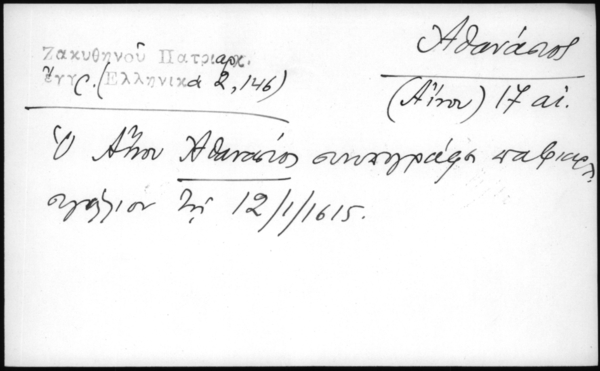 Ζακυθηνοῦ Πατριαρχ.
ἔγγρ. (Ἑλληνικά 2, 146)
Ἀθανάσιος
(Αἴνου) 17 αἰ.
Ὁ Αἴνου Ἀθανάσιος συνυπογράφει πατριαρχ.
σιγίλλιον τῆς 12/1/1615.